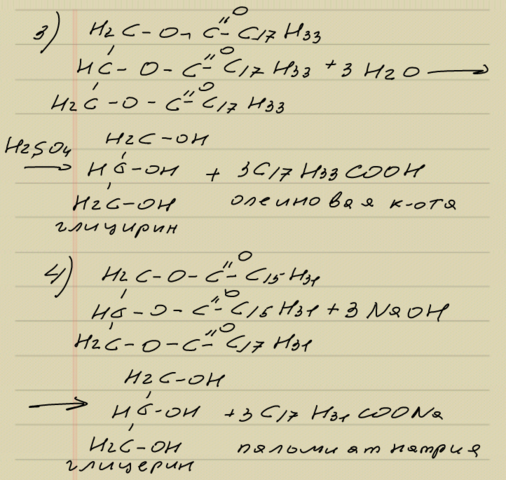 3) H2C-O-C=O-C17H33
HC-O-C=O-C17H33 +3H2O →
H2C-O-C=O-C17H33
H2SO4 → H2C-OH
HC-OH + 3C17H33COOH
H2C-OH олеиновая к-ота
глицирин
4) H2C-O-C=O-C15H31
HC-O-C=O-C15H31 + 3NaOH
H2C-O-C=O-C17H31
H2C-OH
→ HC-OH +3C17H31COONa
H2C-OH паломи ат натрия
глицерин